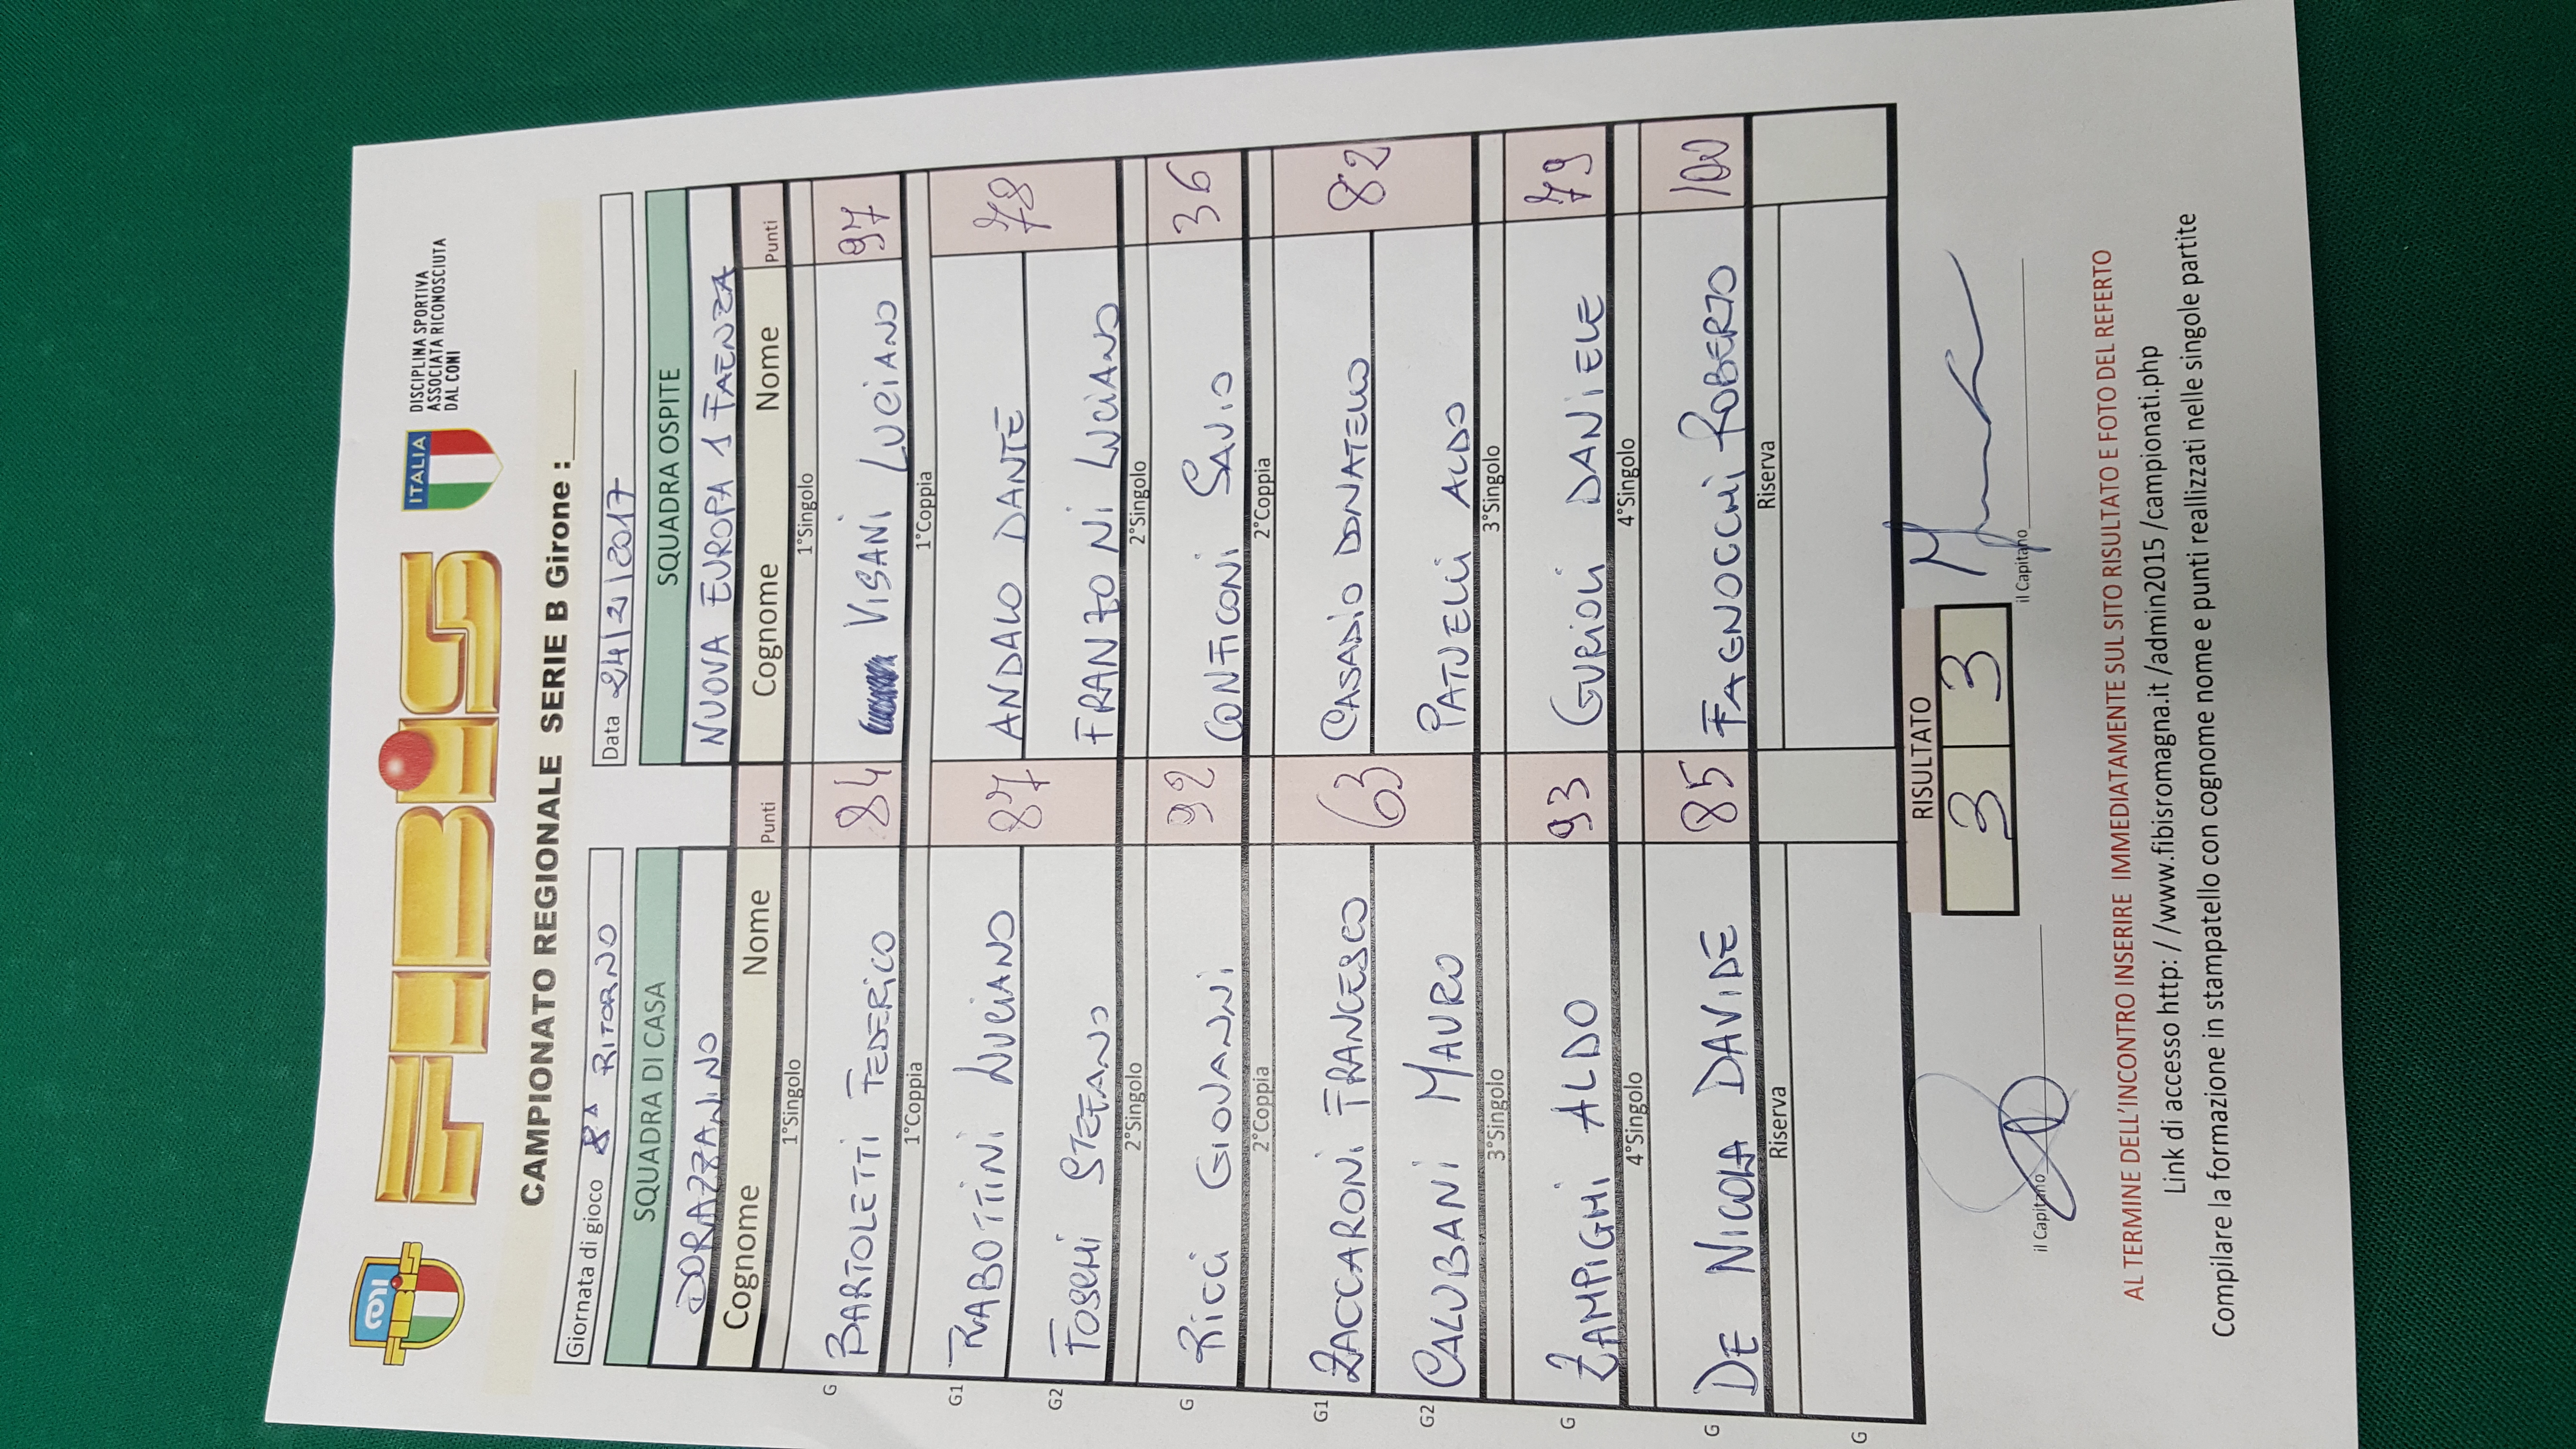 CONI
FIBiS
ITALIA
DISCIPLINA SPORTIVA
ASSOCIATA RICONOSCIUTA
DAL CONI
CAMPIONATO REGIONALE SERIE B Girone :
Giornata di gioco 8ª RITORNO
Data 24/2/2017
SQUADRA DI CASA SQUADRA OSPITE
DORAZZANINO NUOVA EUROPA 1 FAENZA
Cognome Nome Punti Cognome Nome Punti
1°Singolo 1°Singolo
G BARTOLETTI FEDERICO 84 VISANI LUCIANO 97
1°Coppia 1°Coppia
G1 RABOTTINI LUCIANO 87 ANDALO DANTE 78
G2 FOSCHI STEFANO FRANZONI LUCIANO
2°Singolo 2°Singolo
G RICCI GIOVANNI 92 CONFICONI SAVIO 36
2°Coppia 2°Coppia
G1 ZACCARONI FRANCESCO 63 CASADIO DONATELLO 82
G2 CALUBANI MAURO PATUELLI ALDO
3°Singolo 3°Singolo
G ZAMPIGHI ALDO 93 GURIOLI DANIELE 79
4°Singolo 4°Singolo
G DE NICOLA DAVIDE 85 FAGNOCCHI ROBERTO 100
Riserva Riserva
G
RISULTATO
3 3
il Capitano il Capitano
AL TERMINE DELL'INCONTRO INSERIRE IMMEDIATAMENTE SUL SITO RISULTATO E FOTO DEL REFERTO
Link di accesso http: / /www.fibisromagna.it /admin2015 /campionati.php
Compilare la formazione in stampatello con cognome nome e punti reallizzati nelle singole partite